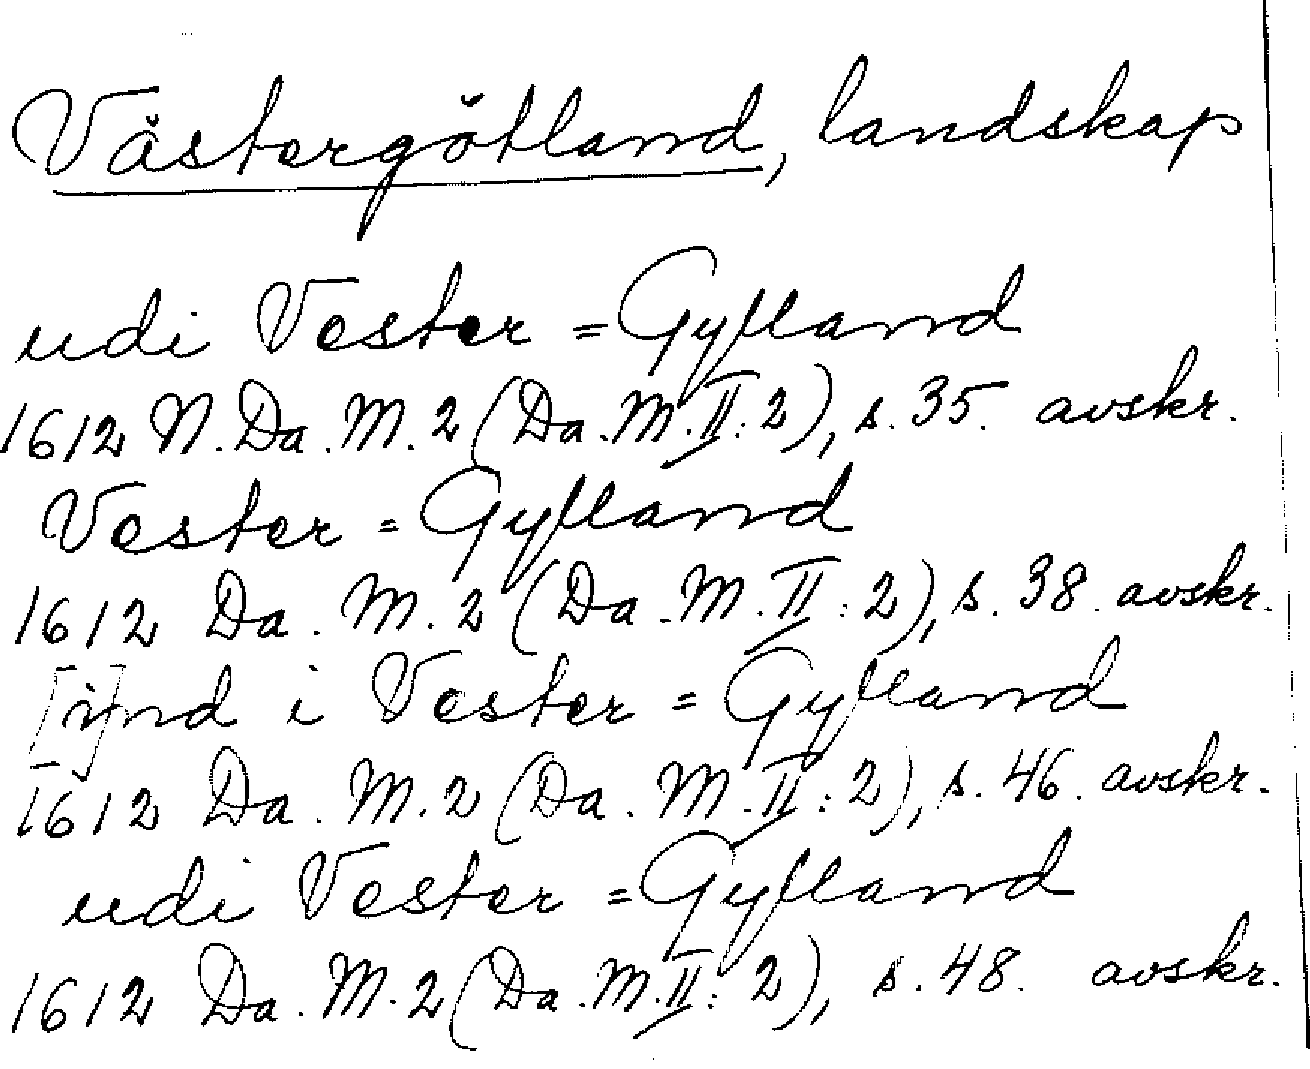 Västergötland, landskap
udi Vester=Gylland
1612 N. Da. M. 2 (Da. M. II: 2), s. 35. avskr.
Vester=Gylland
1612 Da. M. 2 (Da. M. II: 2), s. 38. avskr.
[i]nd i Vester=Gylland
1612 Da. M. 2 (Da. M. II: 2), s. 46. avskr.
udi Vester=Gylland
1612 Da. M. 2 (Da. M. II: 2), s. 48. avskr.